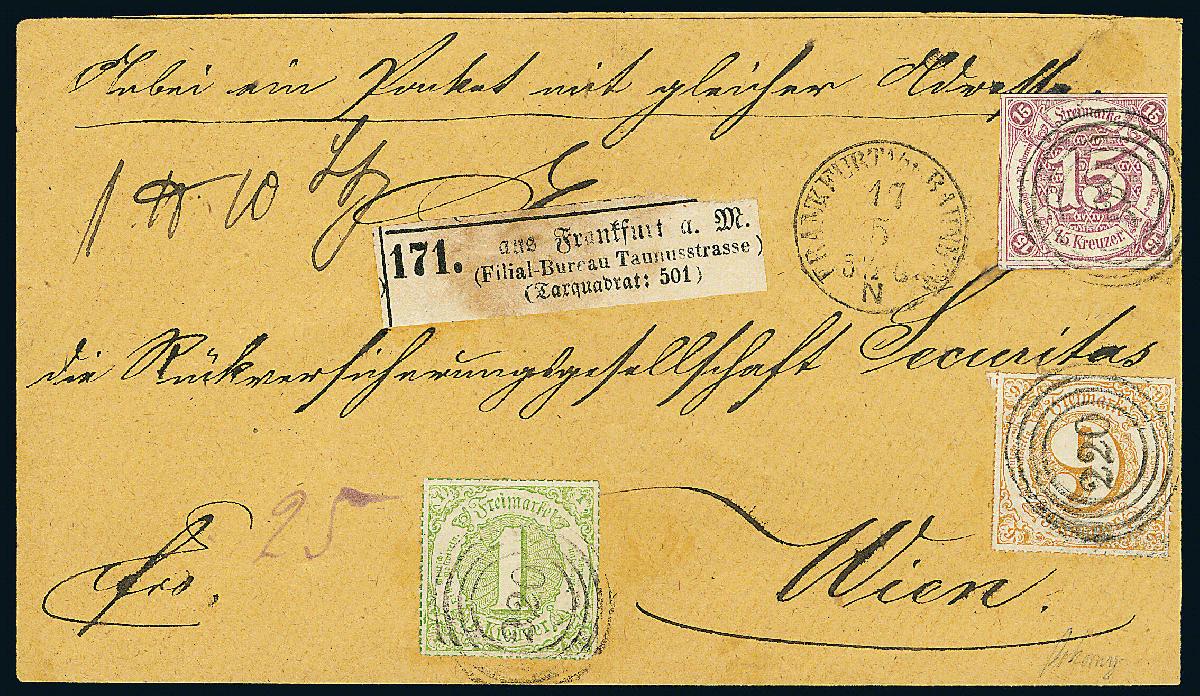 Anbei ein Packet mit gleicher Adresse.
1 ℔ 10 Lth
171. aus Frankfurt a. M.
(Filial-Bureau Taunusstrasse)
(Taxquadrat: 501)
FRANKFURT
17
5
N
15 15
Freimarke
15
15 Kreuzer
15 15
220
die Rückversicherungsgesellschaft Securitas
Freimarke
9
220
25
fro.
Freimarke
1
Kreuzer
220
Wien.